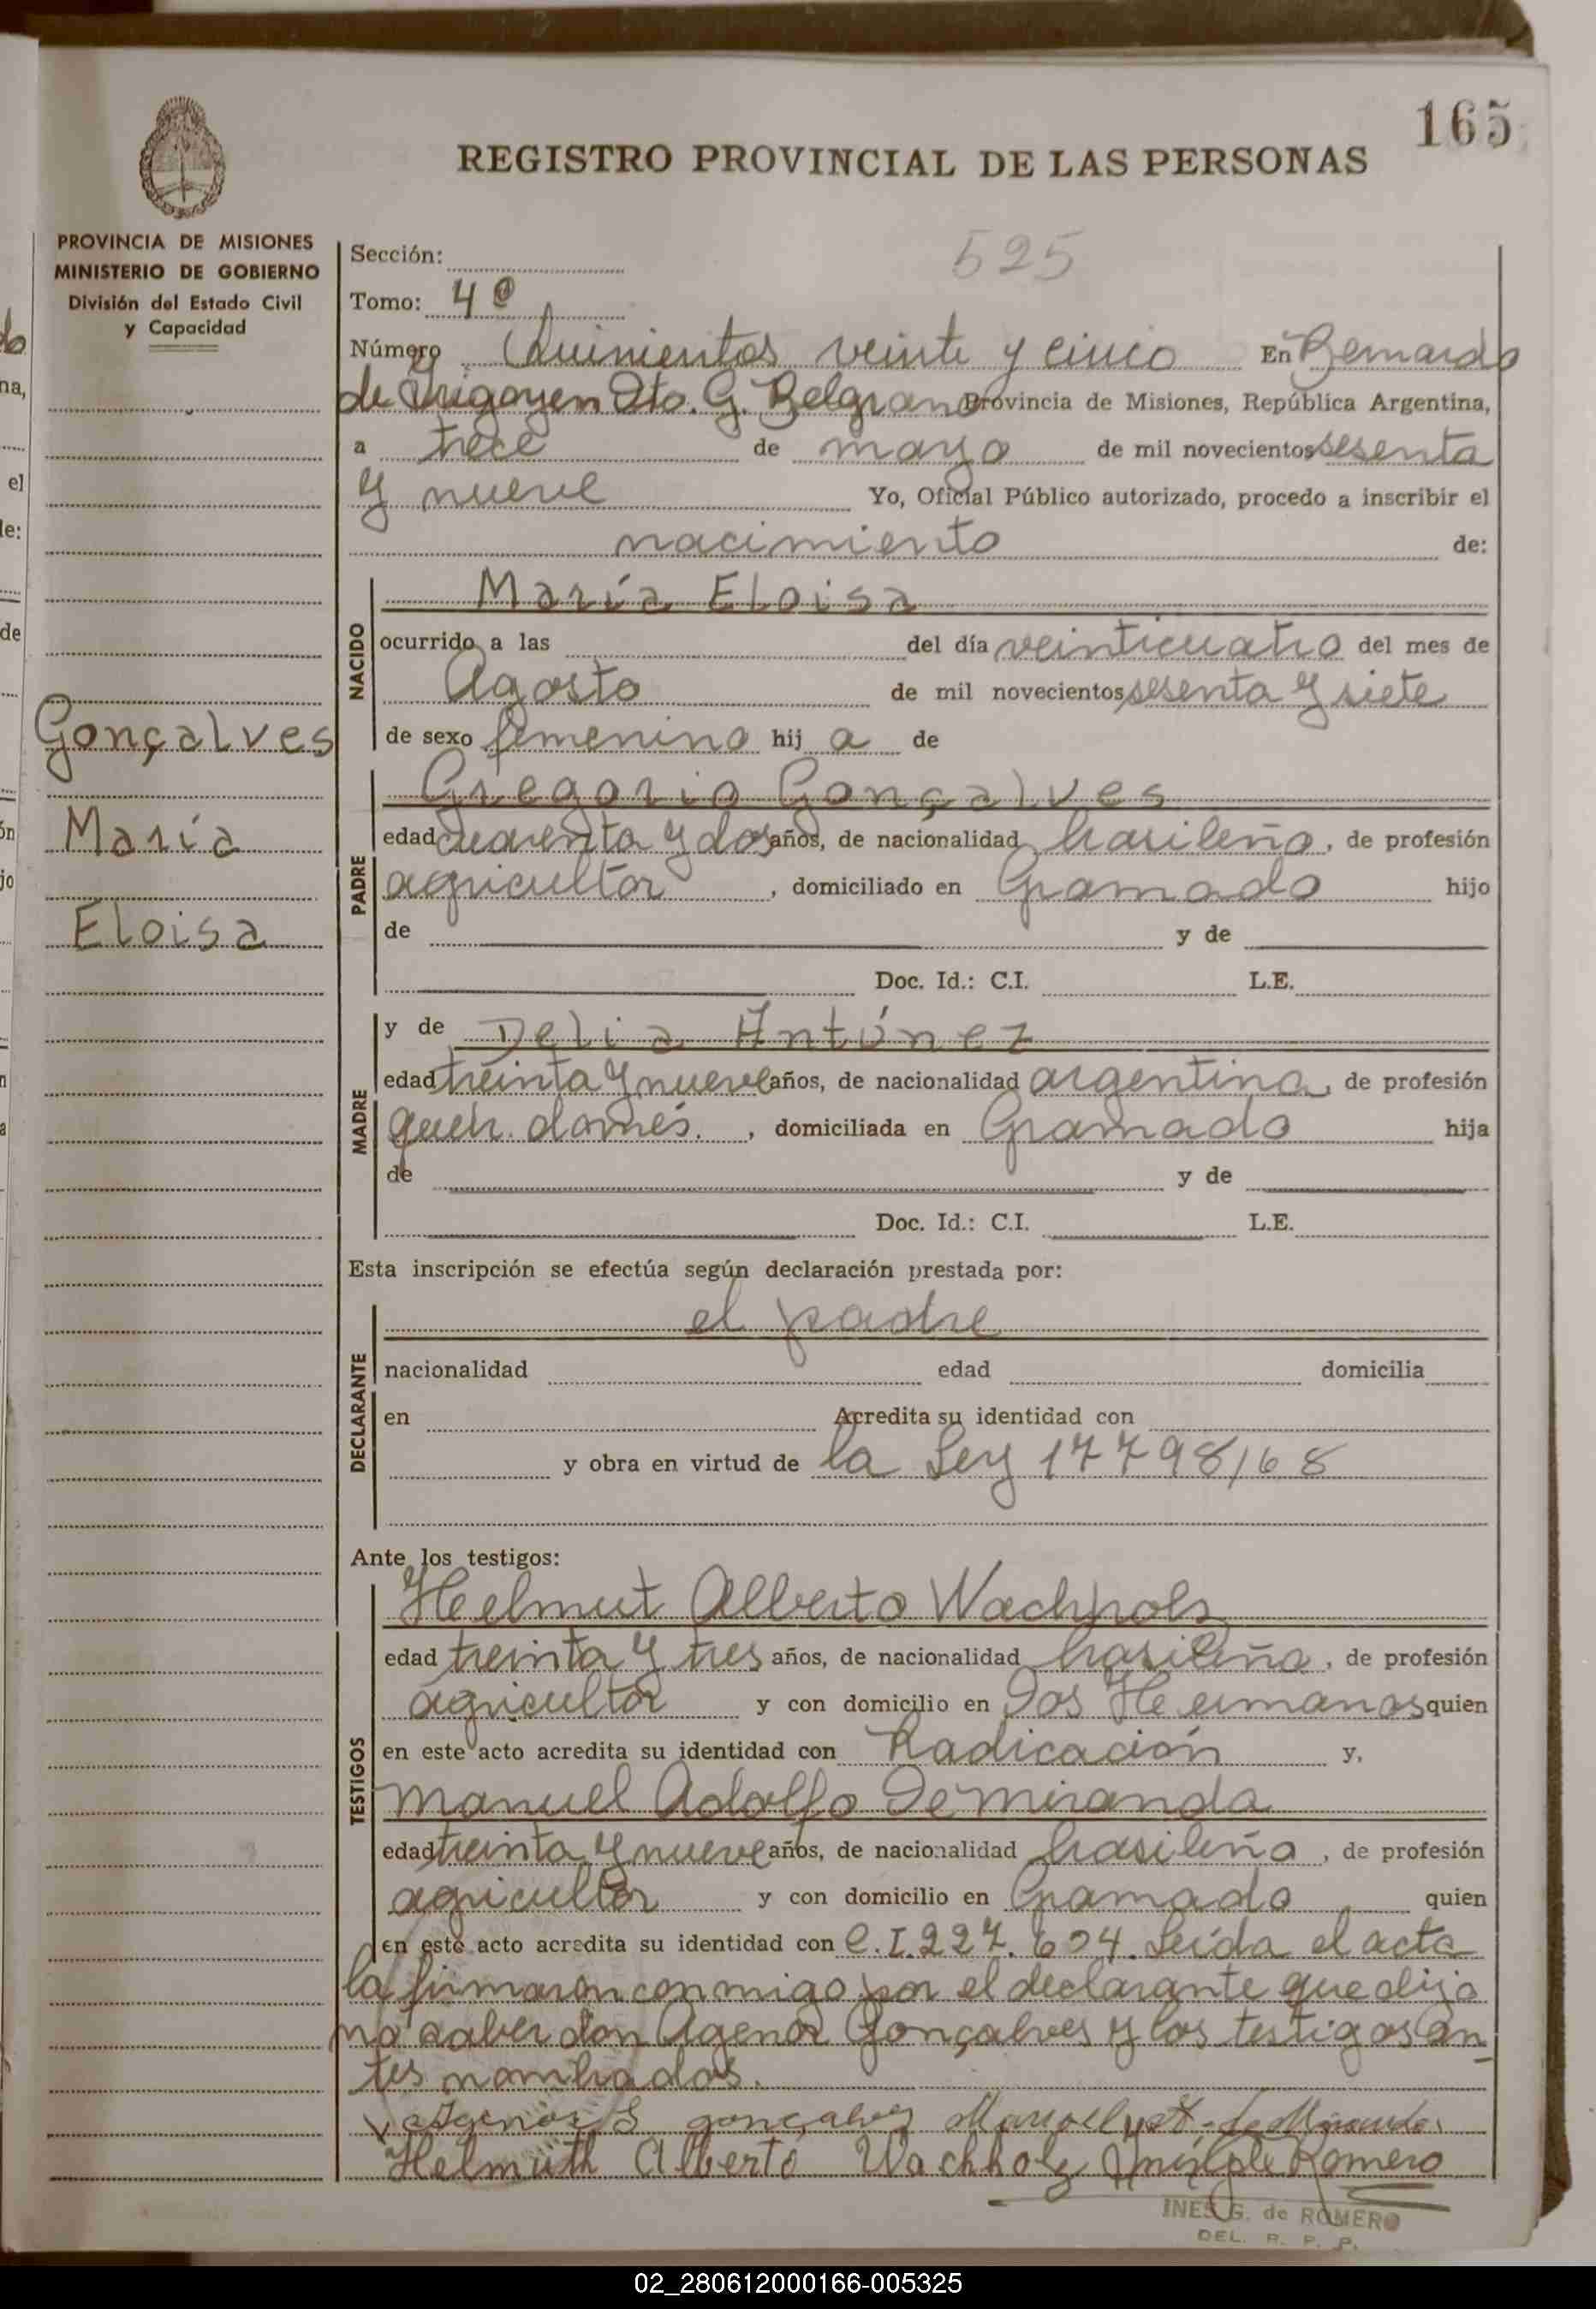 165
REGISTRO PROVINCIAL DE LAS PERSONAS
PROVINCIA DE MISIONES
MINISTERIO DE GOBIERNO
División del Estado Civil
y Capacidad
Gonçalves
María
Eloisa
525
Sección:
Tomo: 4º
Número Quinientos veinte y cinco En Bernardo
de Irigoyen Dto. G. Belgrano Provincia de Misiones, República Argentina,
a trece de mayo de mil novecientos sesenta
y nueve Yo, Oficial Público autorizado, procedo a inscribir el
nacimiento de:
NACIDO
María Eloisa
ocurrido a las del día veinticuatro del mes de
Agosto de mil novecientos sesenta y siete
de sexo femenino hij a de
PADRE
Gregorio Gonçalves
edad cuarenta y dos años, de nacionalidad brasileño, de profesión
agricultor, domiciliado en Gramado hijo
de y de
Doc. Id.: C.I. L.E.
MADRE
y de Delia Antúnez
edad treinta y nueve años, de nacionalidad argentina, de profesión
queh. domés., domiciliada en Gramado hija
de y de
Doc. Id.: C.I. L.E.
Esta inscripción se efectúa según declaración prestada por:
DECLARANTE
el padre
nacionalidad edad domicilia
en Acredita su identidad con
y obra en virtud de la Ley 17798/68
Ante los testigos:
TESTIGOS
Helmut Alberto Wachhols
edad treinta y tres años, de nacionalidad brasileña, de profesión
agricultor y con domicilio en Dos Hermanos quien
en este acto acredita su identidad con Radicación y,
Manuel Adolfo De Miranda
edad treinta y nueve años, de nacionalidad brasileña, de profesión
agricultor y con domicilio en Gramado quien
en este acto acredita su identidad con C.I. 227.604. Leída el acta
la firmaron conmigo por el declarante que dijo
no saber don Agenor Gonçalves y los testigos an
tes nombrados.
Agenor S gonçalves Manoel de Miranda
Helmuth Alberto Wachholz Romero
INES G. de ROMERO
DEL. R. P. P.
02_280612000166-005325